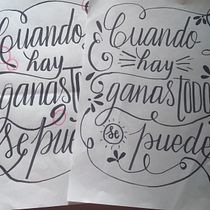 Cuando
hay
ganas TODO
se puede
Cuando
hay
ganas TODO
se puede